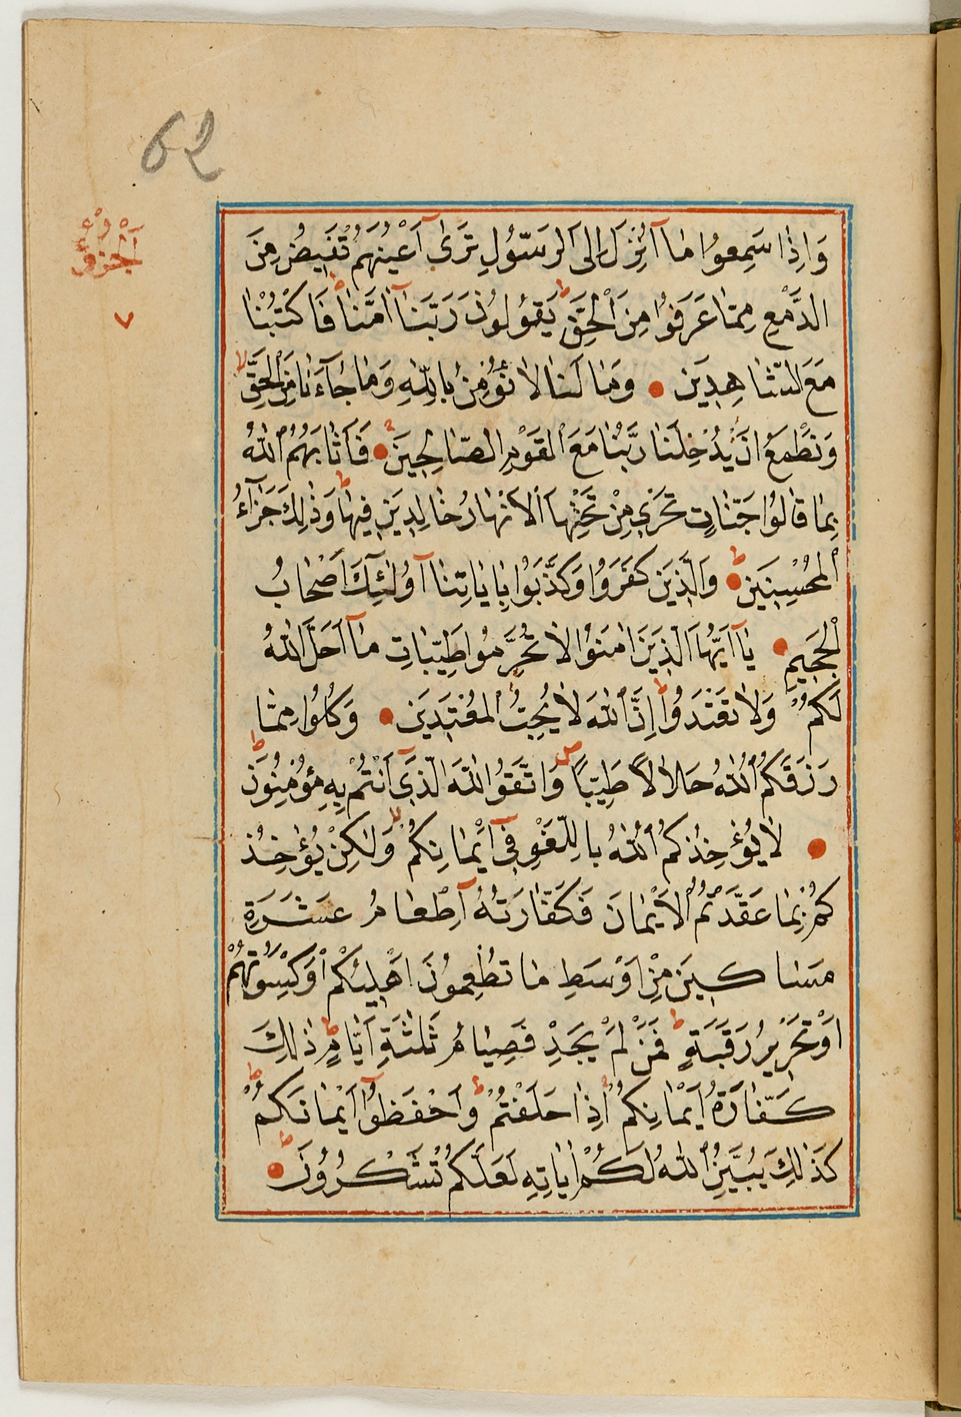 62
الجزو
٧
وَاِذَا سَمِعُوا مَٓا اُنْزِلَ اِلَى الرَّسُولِ تَرٰٓى اَعْيُنَهُمْ تَفٖيضُ مِنَ
الدَّمْعِ مِمَّا عَرَفُوا مِنَ الْحَقِّ ط يَقُولُونَ رَبَّنَٓا اٰمَنَّا فَاكْتُبْنَا
مَعَ الشَّاهِدٖينَ وَمَا لَنَا لَا نُؤْمِنُ بِاللّٰهِ وَمَا جَٓاءَنَا مِنَ الْحَقِّ لا
وَنَطْمَعُ اَنْ يُدْخِلَنَا رَبُّنَا مَعَ الْقَوْمِ الصَّالِحٖينَ فَاَثَابَهُمُ اللّٰهُ
بِمَا قَالُوا جَنَّاتٍ تَجْرٖى مِنْ تَحْتِهَا الْاَنْهَارُ خَالِدٖينَ فٖيهَا ط وَذٰلِكَ جَزَٓاءُ
الْمُحْسِنٖينَ ط وَالَّذٖينَ كَفَرُوا وَكَذَّبُوا بِاٰيَاتِنَٓا اُولٰٓئِكَ اَصْحَابُ
الْجَحٖيمِ يَٓا اَيُّهَا الَّذٖينَ اٰمَنُوا لَا تُحَرِّمُوا طَيِّبَاتِ مَٓا اَحَلَّ اللّٰهُ
لَكُمْ وَلَا تَعْتَدُوا ط اِنَّ اللّٰهَ لَا يُحِبُّ الْمُعْتَدٖينَ وَكُلُوا مِمَّا
رَزَقَكُمُ اللّٰهُ حَلَالًا طَيِّبًا ص وَاتَّقُوا اللّٰهَ الَّذٖٓى اَنْتُمْ بِهٖ مُؤْمِنُونَ ط
لَا يُؤَاخِذُكُمُ اللّٰهُ بِاللَّغْوِ فٖٓى اَيْمَانِكُمْ وَلٰكِنْ يُؤَاخِذُ
كُمْ بِمَا عَقَّدْتُمُ الْاَيْمَانَ فَكَفَّارَتُهُٓ اِطْعَامُ عَشَرَةِ
مَسَاكٖينَ مِنْ اَوْسَطِ مَا تُطْعِمُونَ اَهْلٖيكُمْ اَوْ كِسْوَتُهُمْ
اَوْ تَحْرٖيرُ رَقَبَةٍ ط فَمَنْ لَمْ يَجِدْ فَصِيَامُ ثَلٰثَةِ اَيَّامٍ ط ذٰلِكَ
كَفَّارَةُ اَيْمَانِكُمْ اِذَا حَلَفْتُمْ ط وَاحْفَظُٓوا اَيْمَانَكُمْ ط
كَذٰلِكَ يُبَيِّنُ اللّٰهُ لَكُمْ اٰيَاتِهٖ لَعَلَّكُمْ تَشْكُرُونَ ط